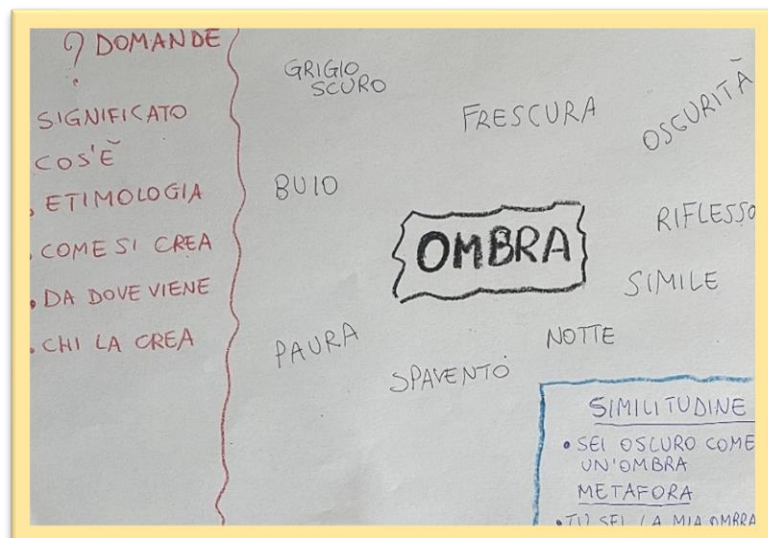 ? DOMANDE
SIGNIFICATO
COS'È
• ETIMOLOGIA
• COME SI CREA
• DA DOVE VIENE
• CHI LA CREA
GRIGIO
SCURO
FRESCURA
OSCURITÀ
BUIO
OMBRA
RIFLESSO
SIMILE
NOTTE
PAURA
SPAVENTO
SIMILITUDINE
• SEI OSCURO COME
UN'OMBRA
METAFORA
• TU SEI LA MIA OMBRA